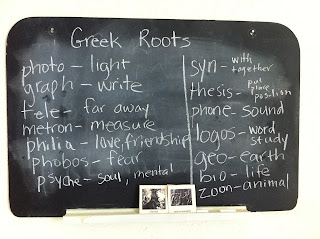 Greek Roots
photo - light
graph - write
tele - far away
metron - measure
philia - love, friendship
phobos - fear
psyche - soul, mental
syn - with together
thesis - put place position
phone - sound
logos - word study
geo - earth
bio - life
zoon - animal